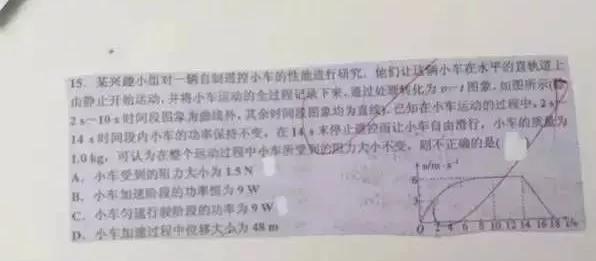 15. 某兴趣小组对一辆自制遥控小车的性能进行研究。他们让这辆小车在水平的直轨道上
由静止开始运动,并将小车运动的全过程记录下来,通过处理转化为 v-t 图象,如图所示(除
2 s~10 s 时间段图象为曲线外,其余时间段图象均为直线).已知在小车运动的过程中,2 s~
14 s 时间段内小车的功率保持不变,在 14 s 末停止遥控而让小车自由滑行,小车的质量为
1.0 kg,可认为在整个运动过程中小车所受到的阻力大小不变,则不正确的是( )
A. 小车受到的阻力大小为 1.5 N
B. 小车加速阶段的功率恒为 9 W
C. 小车匀速行驶阶段的功率为 9 W
D. 小车加速过程中位移大小为 48 m
v/m·s⁻¹
6
3
0 2 4 6 8 10 12 14 16 18 t/s